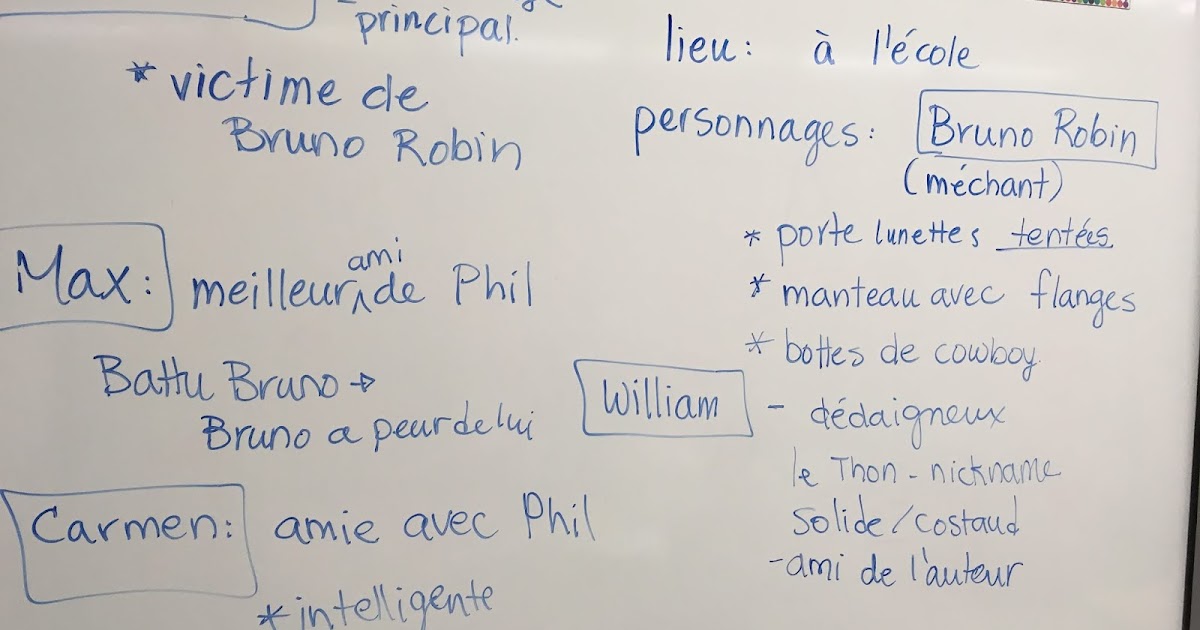 principal.
* victime de
Bruno Robin
Max: meilleur ami de Phil
Battu Bruno →
Bruno a peur de lui
Carmen: amie avec Phil
* intelligente
lieu: à l'école
personnages: Bruno Robin
(méchant)
* porte lunettes tentées
* manteau avec flanges
* bottes de cowboy.
William - dédaigneux
le Thon - nickname
solide/costaud
- ami de l'auteur